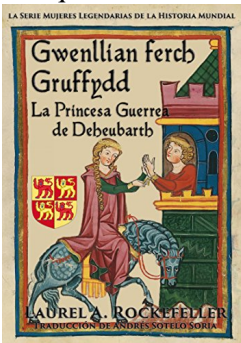 LA SERIE MUJERES LEGENDARIAS DE LA HISTORIA MUNDIAL
Gwenllian ferch
Gruffydd
La Princesa Guerrea
de Deheubarth
LAUREL A. ROCKEFELLER
TRADUCCIÓN DE ANDRÉS SOTELO SORIA